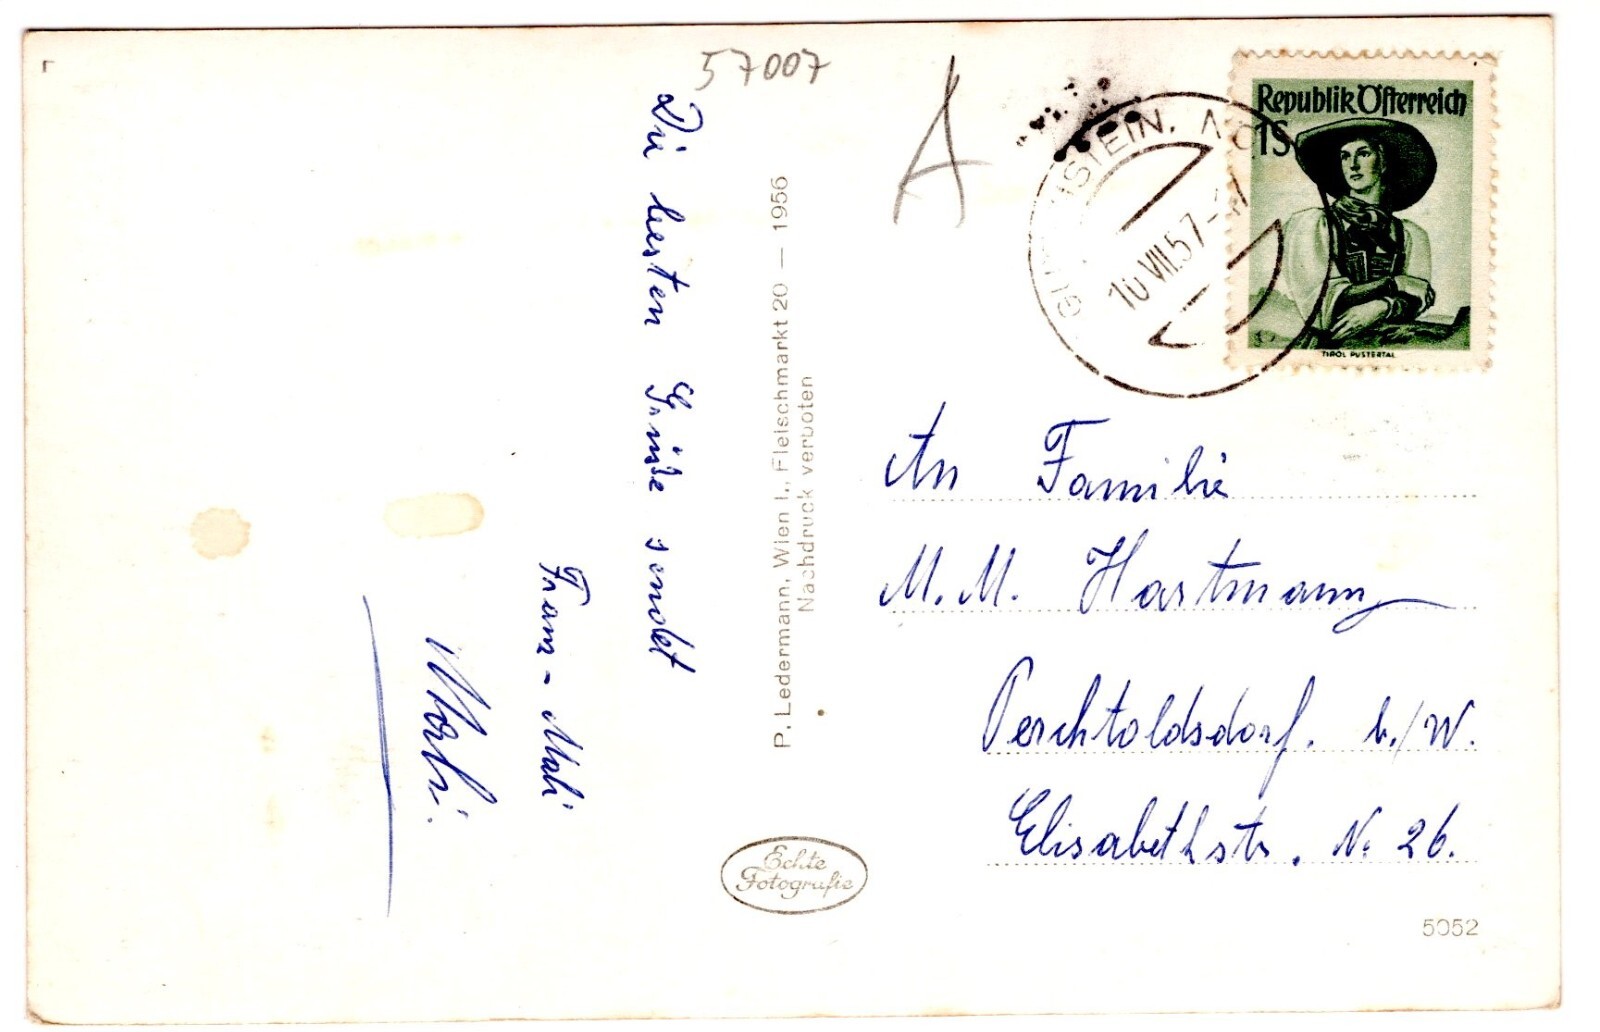 57007
A
Die besten Grüße sendet
Fram-Mali
P. Ledermann, Wien I., Fleischmarkt 20 — 1956
Nachdruck verboten
Echte
Fotografie
STEIN, NÖ
10.VII.57
Republik Österreich
1S
TIROL PUSTERTAL
An Familie
M. M. Hartmann
Perchtoldsdorf. b./W.
Elisabethstr. N. 26.
5052